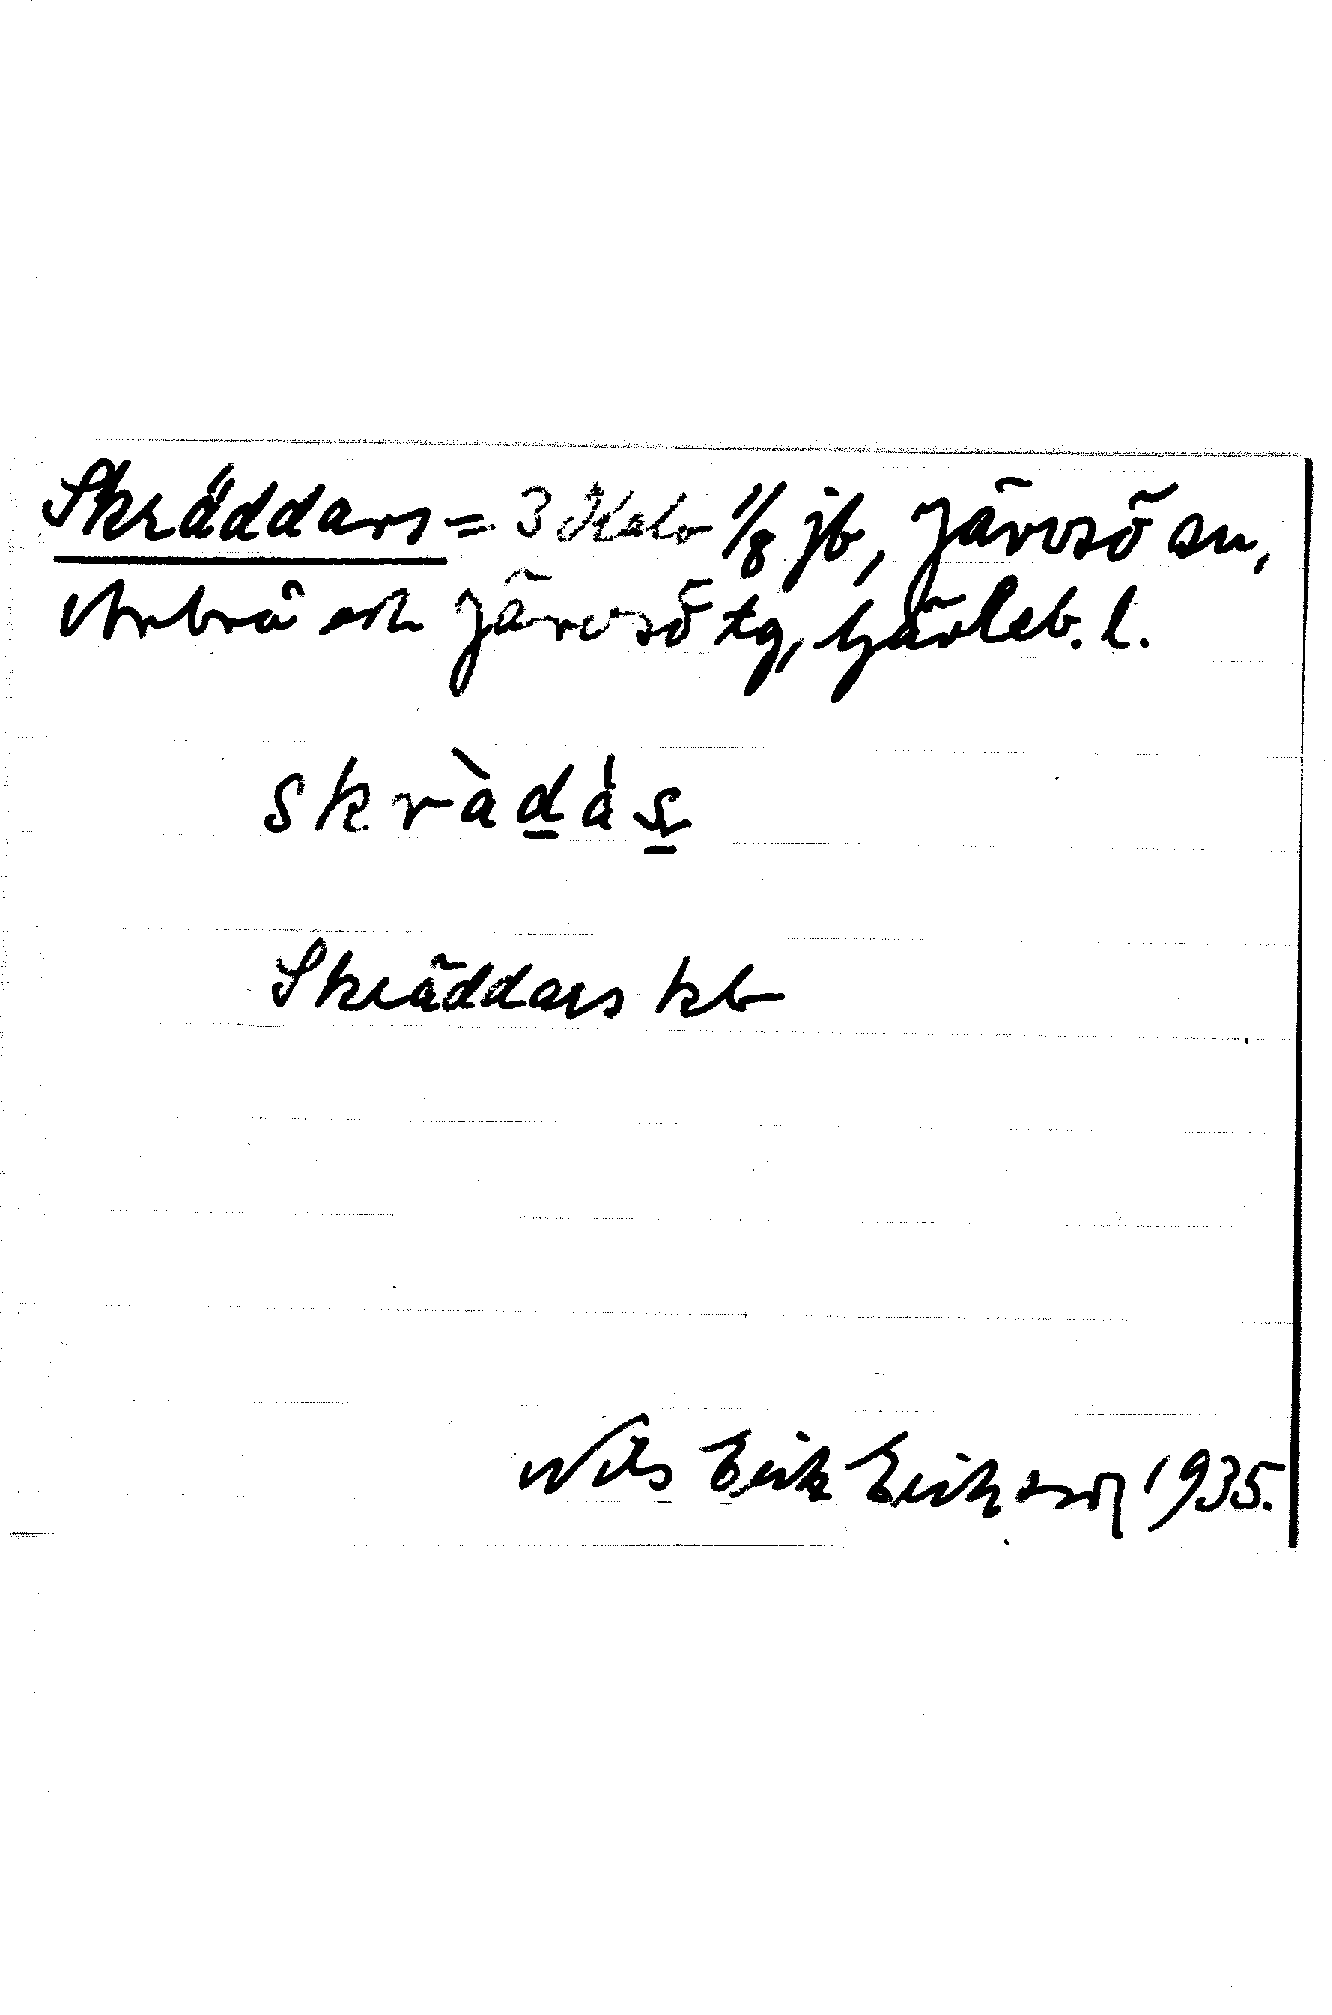 Skräddars = 3 Kalv 1/8 jb, Järvsö sn,
Arbrå och Järvsö tg, Gävleb. l.
skràdàs
Skräddars kb
Nils Erik Erikson 1935.